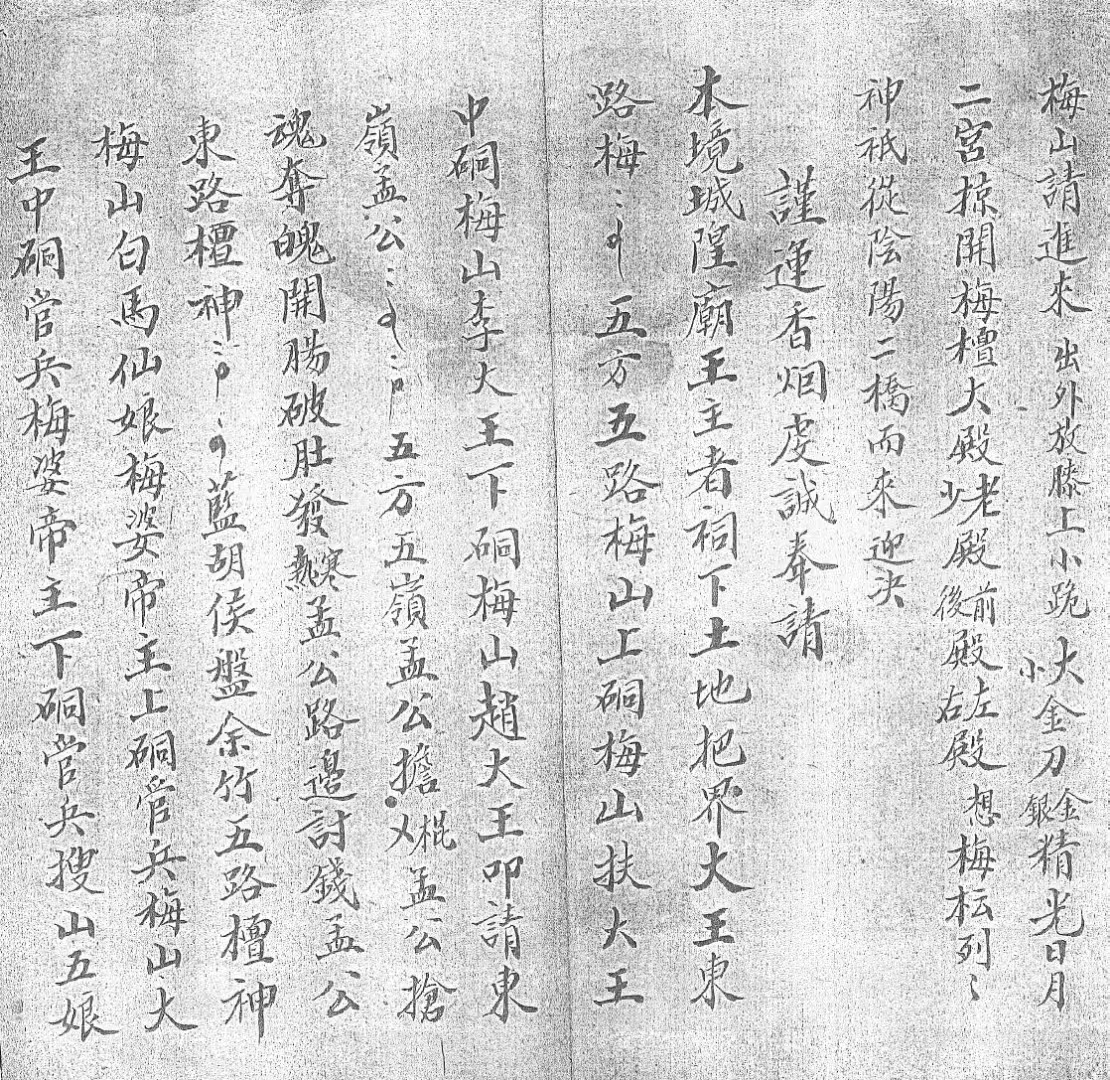 梅山請進來出外放膝上小跪大小金刀金銀精光日月
二宮掠開梅壇大殿老少殿前後殿左右殿想梅枟列〻
神祇從陰陽二橋而來迎決
謹運香烟虔誠奉請
本境城隍廟王主者祠下土地把界大王東
路梅〻 五方五路梅山上硐梅山扶大王
中硐梅山李大王下硐梅山趙大王叩請東
嶺孟公〻 五方五嶺孟公擔棍乂孟公搶
魂奪魄開腸破肚發寒熱孟公路邊討錢孟公
東路檀神〻 藍胡侯盤余竹五路檀神
梅山白馬仙娘梅婆帝主上硐管兵梅山大
王中硐管兵梅婆帝主下硐管兵搜山五娘